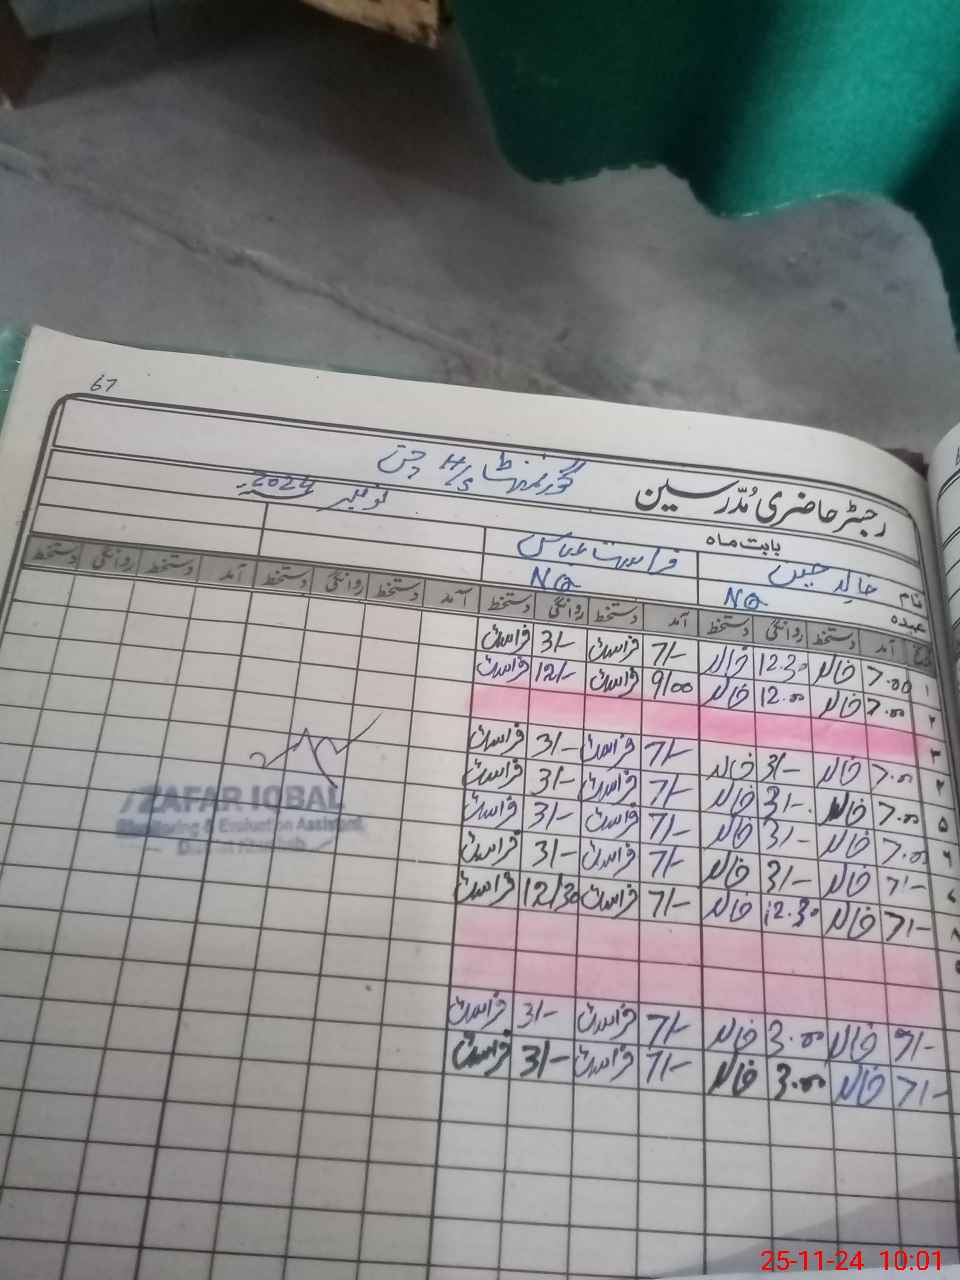 67
گورنمنٹ H/S
رجسٹر حاضری مُدّرسین
بابت ماہ نومبر 2024
نام خالد حسین فراست عباس
عہدہ NQ NQ
آمد دستخط روانگی دستخط آمد دستخط روانگی دستخط آمد دستخط روانگی دستخط آمد دستخط روانگی دستخط
۱ 7.00 خالد 12.30 خالد 7/- فراست 3/- فراست
۲ 7.00 خالد 12.00 خالد 9/00 فراست 12/- فراست
۳
۴ 7.00 خالد 3/- خالد 7/- فراست 3/- فراست
۵ 7.00 خالد 3/- خالد 7/- فراست 3/- فراست
۶ 7.00 خالد 3/- خالد 7/- فراست 3/- فراست
7/- خالد 3/- خالد 7/- فراست 3/- فراست
7/- خالد 12.30 خالد 7/- فراست 12/30 فراست
خالد 3.00 خالد 7/- فراست 3/- فراست
7/- خالد 3.00 خالد 7/- فراست 3/- فراست
ZAFAR IQBAL
Monitoring & Evaluation Assistant
District
25-11-24 10:01